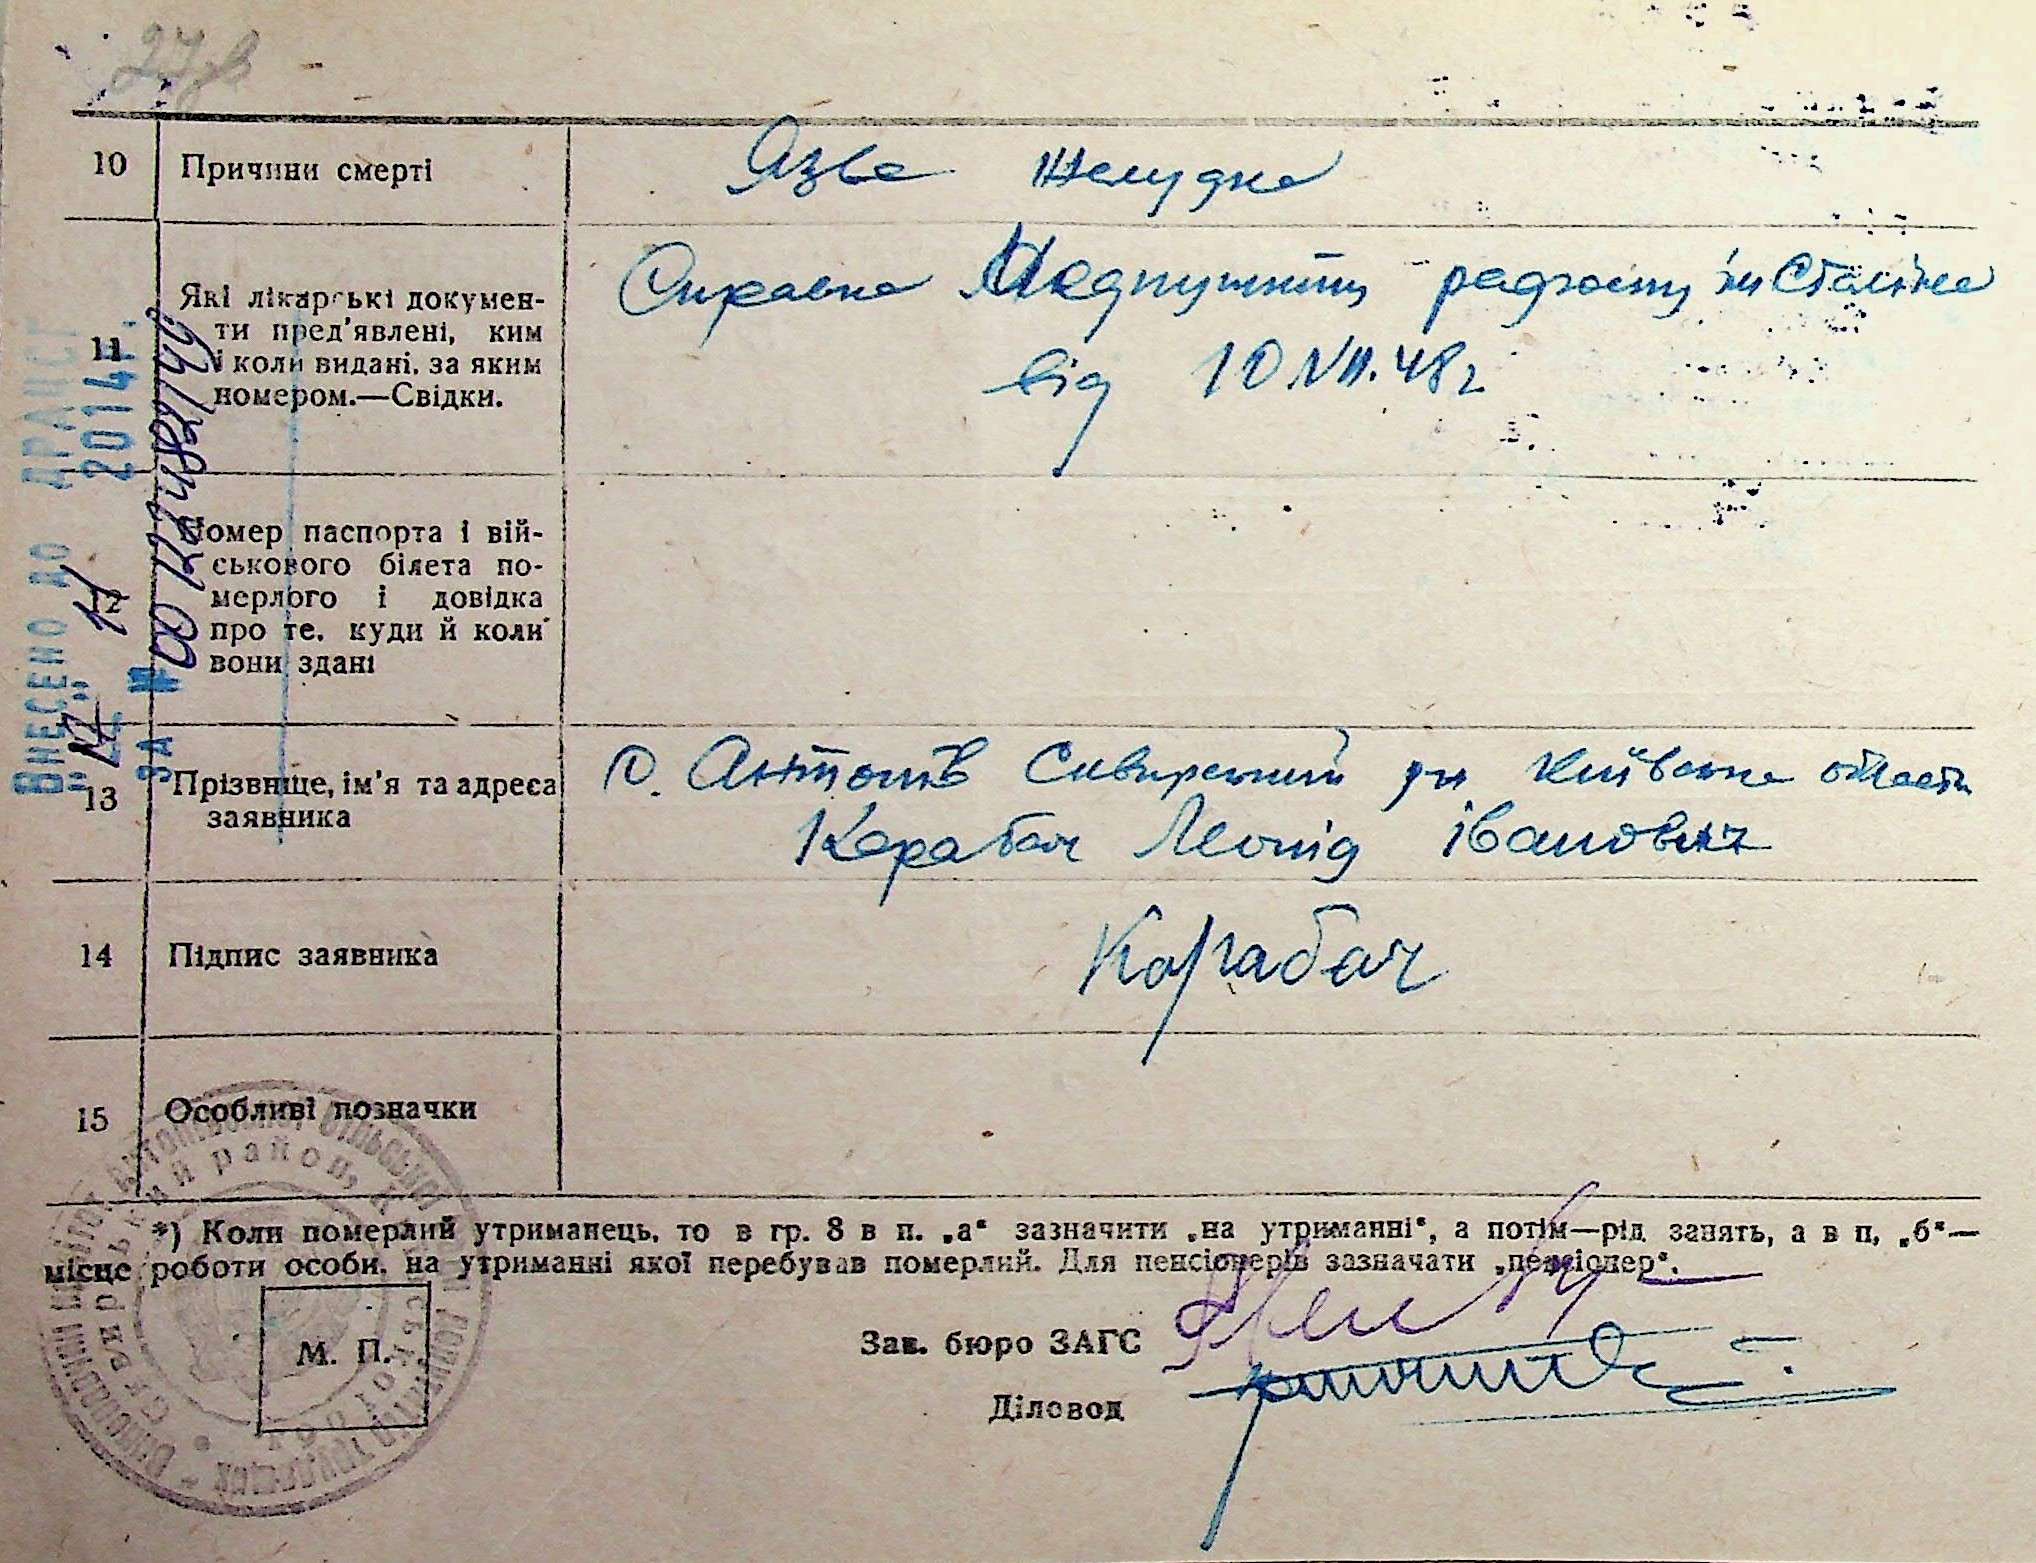 10 Причини смерті Язва желудка
11 Які лікарські докумен-
ти пред'явлені, ким
і коли видані, за яким
номером.—Свідки.
Справка Медпункту радгоспу ім Сталіна
від 10.VII.48 г
12 Номер паспорта і вій-
ськового білета по-
мерлого і довідка
про те, куди й коли
вони здані
13 Прізвище, ім'я та адреса
заявника
с. Антонів Сквирський р-н Київська область
Карабач Леонід Іванович
14 Підпис заявника Карабач
15 Особливі позначки
*) Коли померлий утриманець, то в гр. 8 в п. „а“ зазначити „на утриманні“, а потім—рід занять, а в п. „б“—
місце роботи особи, на утриманні якої перебував померлий. Для пенсіонерів зазначати „пенсіонер“.
М. П.
Зав. бюро ЗАГС
Діловод
ВНЕСЕНО ДО ДРАЦСГ
2014
ЗА №